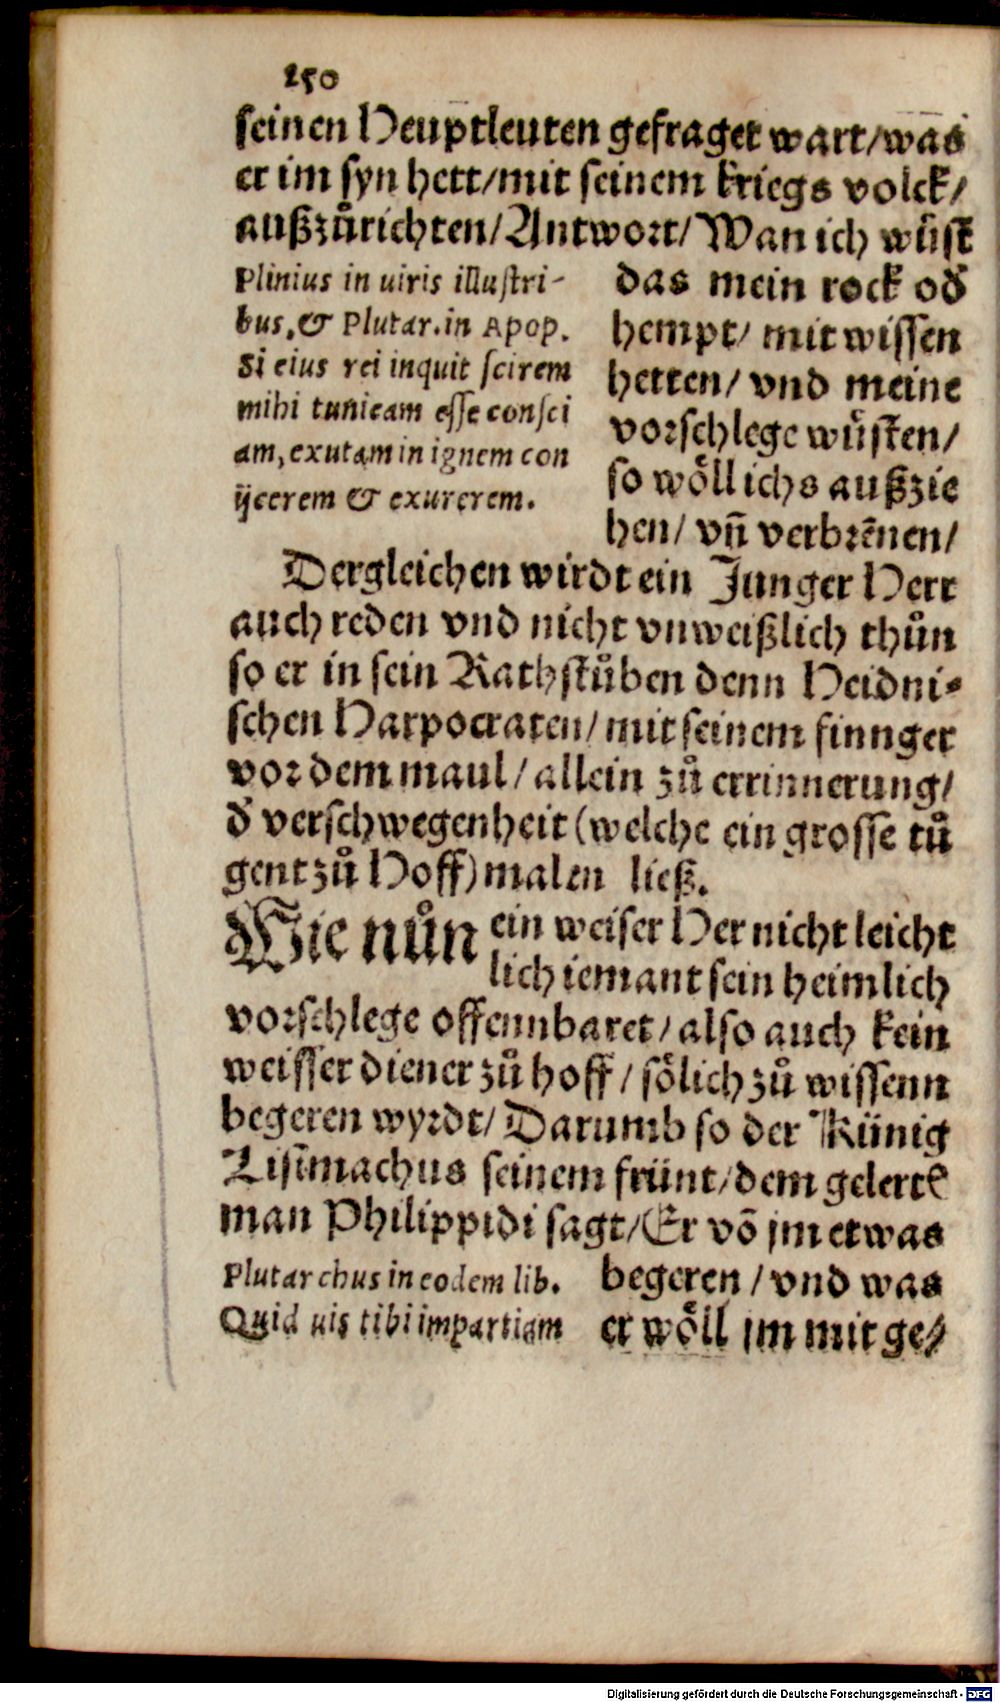 150
seinen Heuptleuten gefraget wart/was
er im syn hett/mit seinem kriegs volck/
außzůrichten/Antwort/Wan ich wüst
Plinius in uiris illustri-
bus, & Plutar. in Apop.
Si eius rei inquit scirem
mihi tunicam esse consci
am, exutam in ignem con
ijcerem & exurerem.
das mein rock od̄
hempt/ mit wissen
hetten/ vnd meine
vorschlege wüsten/
so wöllichs außzie
hen/ vn̄ verbrēnen/
Dergleichen wirdt ein Junger Herr
auch reden vnd nicht vnweißlich thůn
so er in sein Rathstůben denn Heidni-
schen Harpocraten/ mit seinem finnger
vor dem maul/ allein zů errinnerung/
d̄ verschwegenheit (welche ein grosse tů
gent zů Hoff) malen ließ.
Wie nůn ein weiser Her nicht leicht
lich iemant sein heimlich
vorschlege offennbaret/ also auch kein
weisser diener zů hoff/ sölich zů wissenn
begeren wyrdt/ Darumb so der Künig
Lisimachus seinem frünt/dem gelertē
man Philippidi sagt/Er vō jm etwas
Plutarchus in eodem lib.
Quid uis tibi impartiam
begeren/vnd was
er wöll jm mit ge/
Digitalisierung gefördert durch die Deutsche Forschungsgemeinschaft - DFG